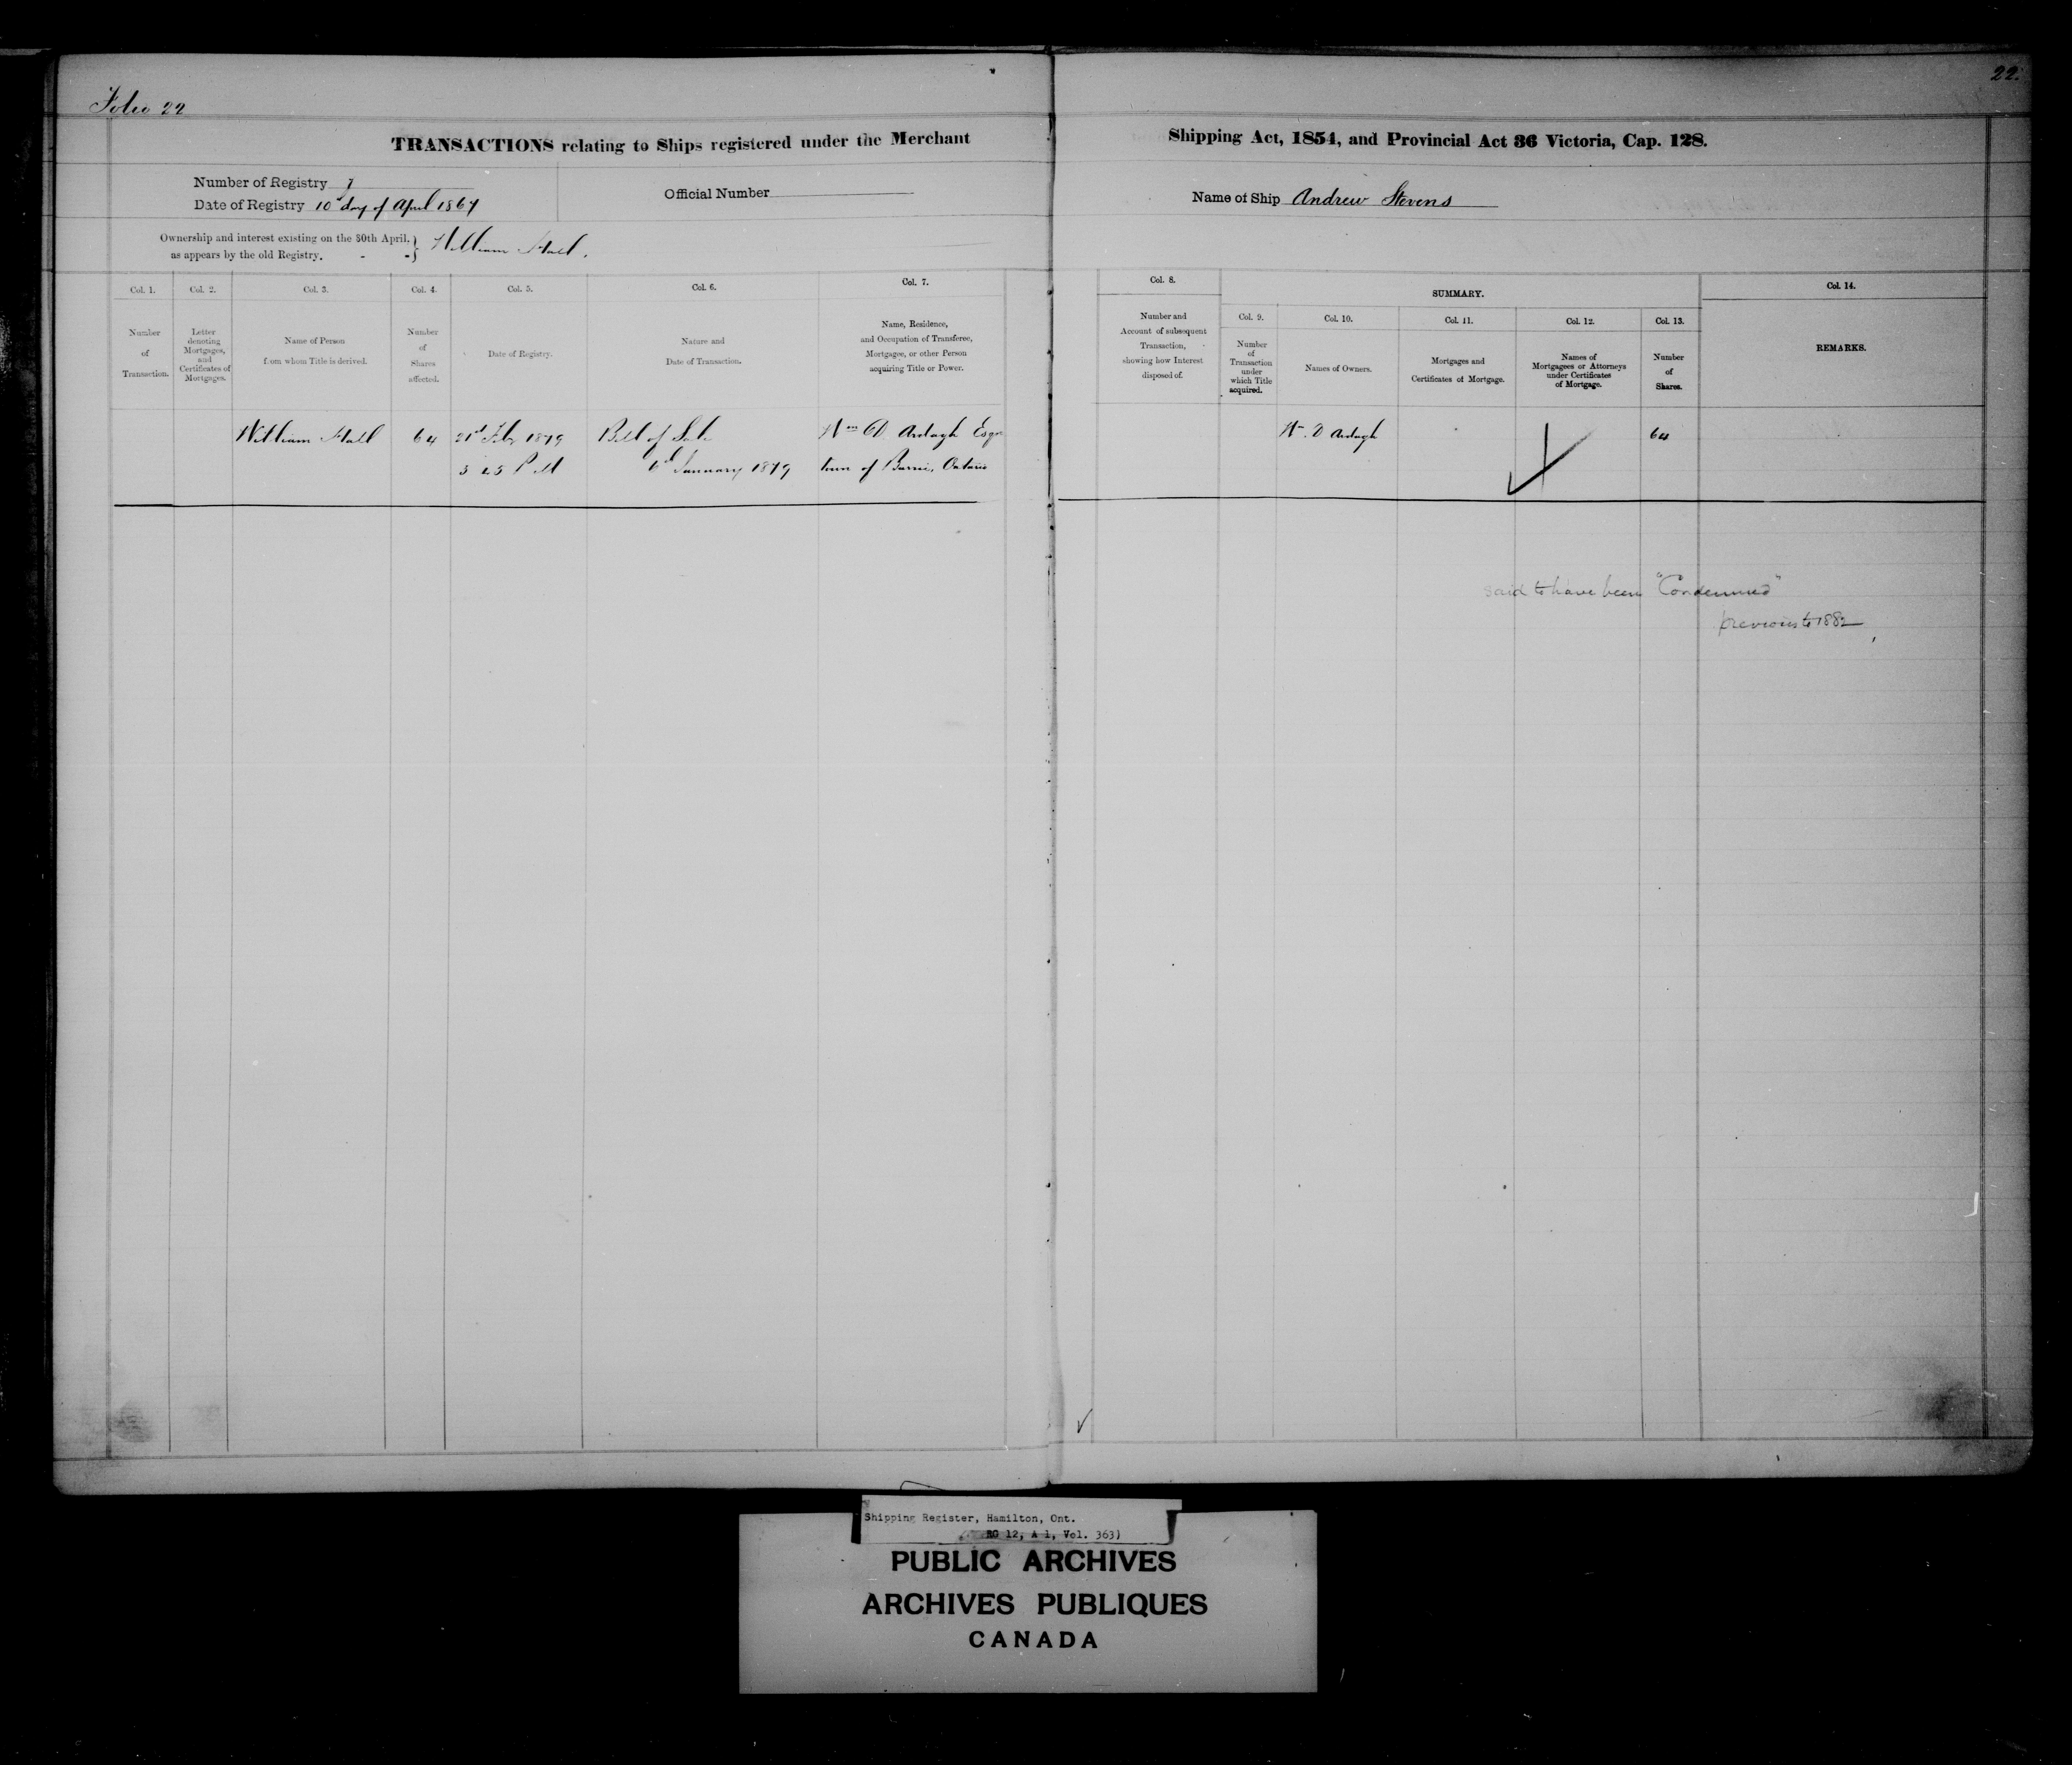 22.
Folio 22
TRANSACTIONS relating to Ships registered under the Merchant Shipping Act, 1854, and Provincial Act 36 Victoria, Cap. 128.
Number of Registry
Date of Registry 10th day of April 1867
Official Number
Name of Ship Andrew Stevens
Ownership and interest existing on the 30th April.
as appears by the old Registry. - - } William Hall.
Col. 1.
Number
of
Transaction.
Col. 2.
Letter
denoting
Mortgages,
and
Certificates of
Mortgages.
Col. 3.
Name of Person
from whom Title is derived.
Col. 4.
Number
of
Shares
affected.
Col. 5.
Date of Registry.
Col. 6.
Nature and
Date of Transaction.
Col. 7.
Name, Residence,
and Occupation of Transferee,
Mortgagee, or other Person
acquiring Title or Power.
Col. 8.
Number and
Account of subsequent
Transaction,
showing how Interest
disposed of.
SUMMARY.
Col. 9.
Number
of
Transaction
under
which Title
acquired.
Col. 10.
Names of Owners.
Col. 11.
Mortgages and
Certificates of Mortgage.
Col. 12.
Names of
Mortgagees or Attorneys
under Certificates
of Mortgage.
Col. 13.
Number
of
Shares.
Col. 14.
REMARKS.
William Hall 64 21st Feby 1879 Bill of Sale Wm D Ardagh Esqr Wm D Ardagh 64
3 25 P M 6th January 1879 town of Barrie, Ontario
said to have been "Condemned"
previous to 1882
Shipping Register, Hamilton, Ont.
RG 12, A 1, Vol. 363)
PUBLIC ARCHIVES
ARCHIVES PUBLIQUES
CANADA